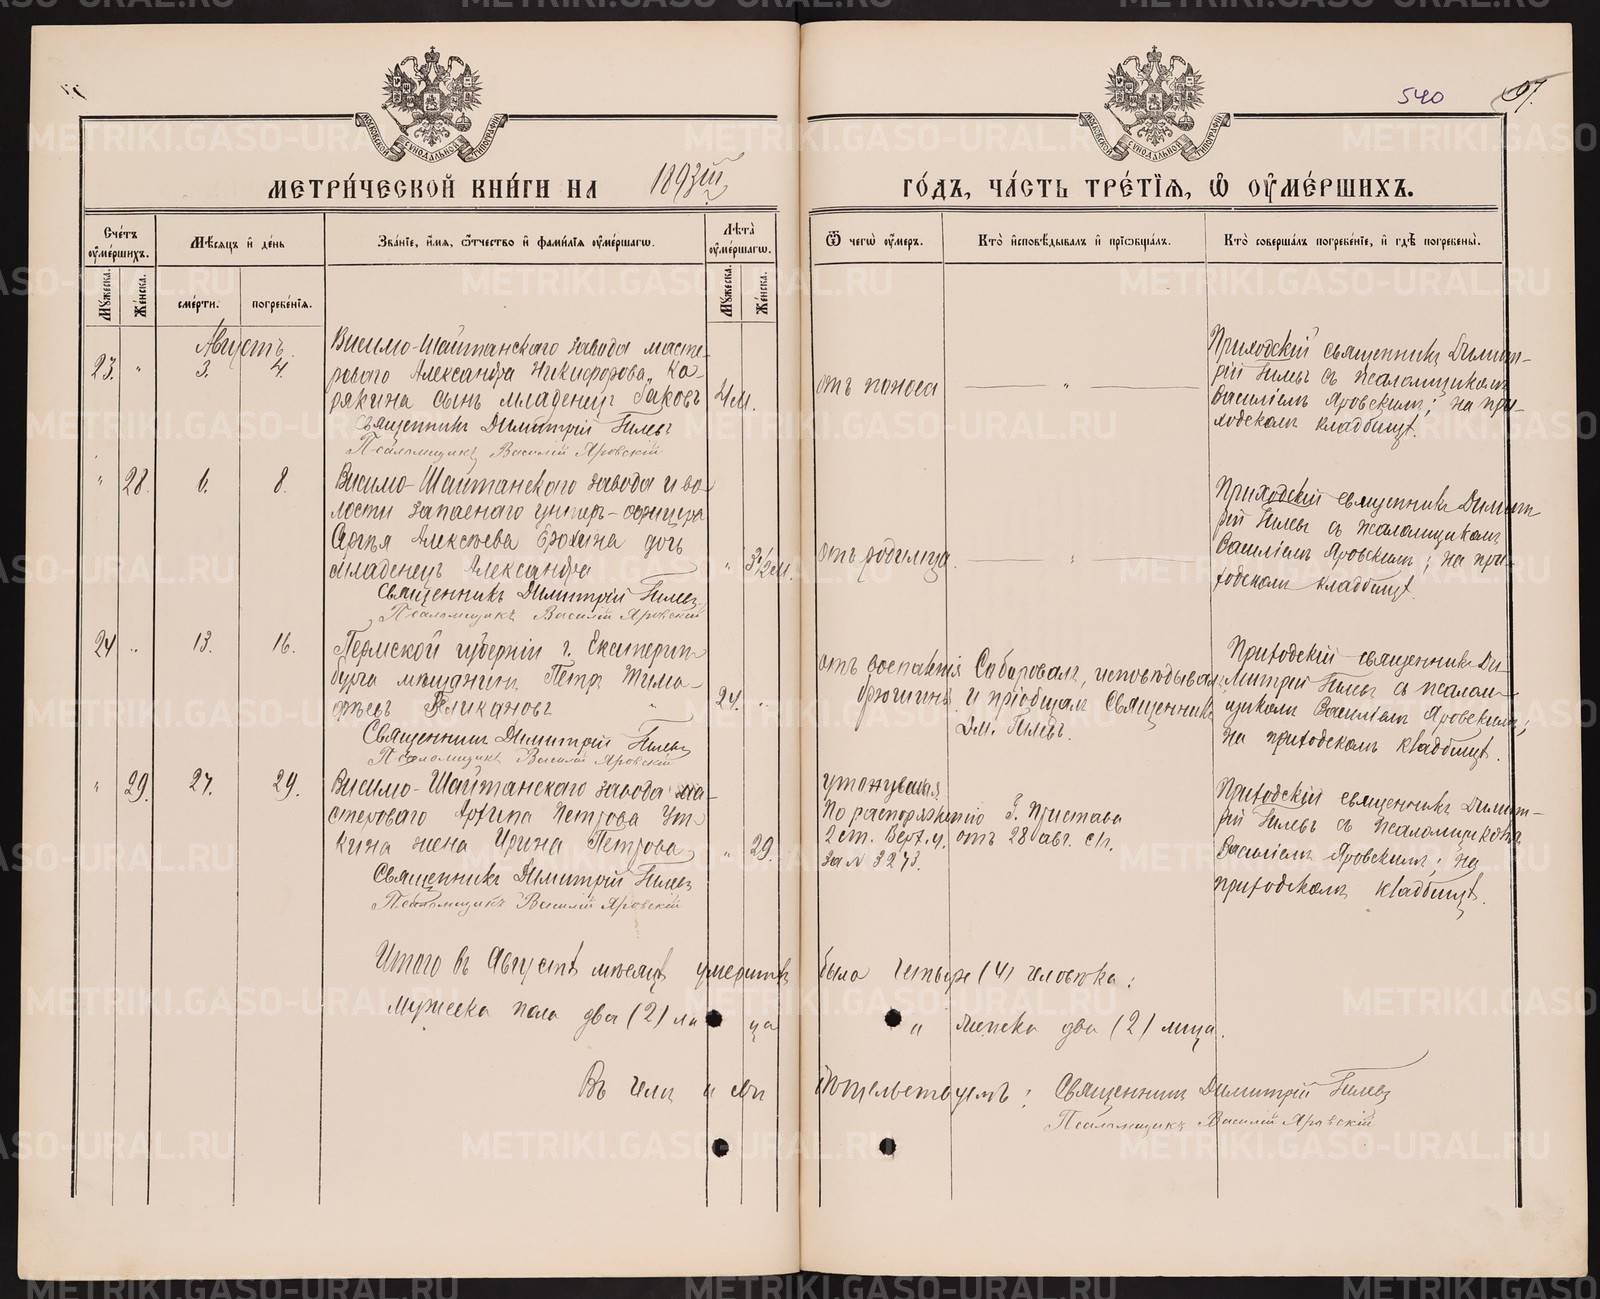 540
97.
МОСКОВСКОЙ СѴНОДАЛЬНОЙ ТИПОГРАФІИ
МОСКОВСКОЙ СѴНОДАЛЬНОЙ ТИПОГРАФІИ
МЕТРИ́ЧЕСКОЙ КНИ́ГИ НА 1893
ГО́ДЪ, ЧА́СТЬ ТРЕ́ТІЯ, Ѡ ОУМЕ́РШИХЪ.
Сче́тъ оуме́ршихъ.
Му́жеска.
Же́нска.
Мѣ́сяцъ и де́нь
сме́рти.
погребе́нія.
Зва́ніе, и́мя, ѻ́тчество и фами́лія оуме́ршагѡ.
Лѣ́та оуме́ршагѡ.
Му́жеска.
Же́нска.
Ѿ чегѡ̀ оу́меръ.
Кто̀ исповѣ́дывалъ и пріѻбща́лъ.
Кто̀ соверша́лъ погребе́ніе, и гдѣ̀ погребены̀.
Августъ.
23. " 3. 4.
Висимо-Шайтанскаго завода масте-
роваго Александра Никифорова Ко-
рякина сынъ младенецъ Іаковъ
4 м.
Священникъ Димитрій Гилевъ
Псаломщикъ Василій Яровскій
отъ поноса
"
Приходскій священникъ Димит-
рій Гилевъ съ псаломщикомъ
Василіемъ Яровскимъ; на при-
ходскомъ кладбищѣ.
" 28. 6. 8.
Висимо-Шайтанскаго завода и во-
лости запаснаго унтеръ-офицера
Сергѣя Алексѣева Ерохина дочь
младенецъ Александра
" 3½ м.
Священникъ Димитрій Гилевъ
Псаломщикъ Василій Яровскій
отъ родимца.
"
Приходскій священникъ Димит-
рій Гилевъ съ псаломщикомъ
Василіемъ Яровскимъ; на при-
ходскомъ кладбищѣ.
24 " 13. 16.
Пермской губерніи г. Екатерин-
бурга мѣщанинъ Петръ Тимо-
фѣевъ
24. "
Священникъ Димитрій Гилевъ
Псаломщикъ Василій Яровскій
отъ воспаленія
брюшины.
Соборовалъ, исповѣдывалъ
и пріобщалъ Священникъ
Дм. Гилевъ.
Приходскій священникъ Ди-
митрій Гилевъ съ псалом-
щикомъ Василіемъ Яровскимъ;
на приходскомъ кладбищѣ.
" 29. 27. 29.
Висимо-Шайтанскаго завода ма-
стероваго Архипа Петрова Ут-
кина жена Ирина Петрова
" 29.
Священникъ Димитрій Гилевъ
Псаломщикъ Василій Яровскій
утонувшая.
По распоряженію Г. Пристава
2 ст. Верх. у. отъ 28 авг. с/г.
за № 3273.
Приходскій священникъ Димит-
рій Гилевъ съ псаломщикомъ
Василіемъ Яровскимъ; на
приходскомъ кладбищѣ.
Итого въ Августѣ мѣсяцѣ умершихъ было четыре (4) человѣка:
мужеска пола два (2) лица и женска два (2) лица.
Въ чемъ и свидѣтельствуемъ: Священникъ Димитрій Гилевъ
Псаломщикъ Василій Яровскій
METRIKI.GASO-URAL.RU